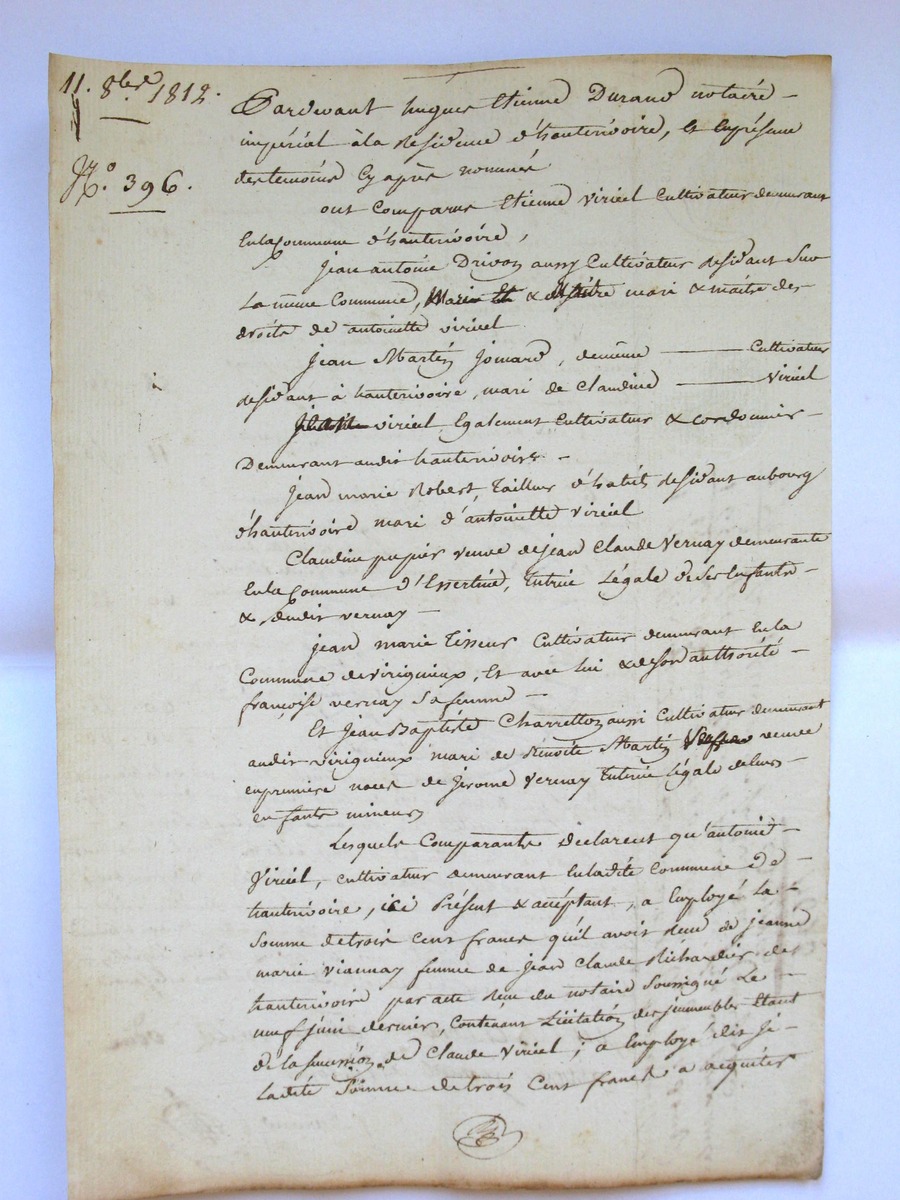 11. 8bre 1812.
N.º 396.
Pardevant hugues Etienne Durand notaire
impérial à la Residence d'hauterivoire, et En présence
des temoins Cy après nommés
ont Comparus Etienne Viriel Cultivateur demeurant
En la Commune d'hauterivoire,
Jean antoine Drivon aussy Cultivateur residant Sur
La même Commune, mari & maitre des
droits de antoinette viriel
Jean Martin Jomard, de même Cultivateur
residant à hauterivoire, mari de Claudine Viriel
viriel Egalement Cultivateur & cordonnier
Demeurant audit hauterivoire
Jean marie Robert, Tailleur d'habits residant au bourg
d'hauterivoire mari d'antoinette Viriel
Claudine pupier veuve de jean Claude Vernay demeurante
En la Commune d'Essertine, Tutrice Légale de Ses Enfants
& dudit vernay
jean marie Tisseur Cultivateur demeurant En la
Commune de virigneux, Et avec lui & de son authorité
françoise vernay Sa femme
Et Jean Baptiste Charretton aussi Cultivateur demeurant
audit virigneux mari de Benoite Martin veuve
en premiere noces de Jerome Vernay Tutrice légale de leurs
enfants mineurs
Lesquels Comparants déclarent qu'antoine
Viriel, cultivateur demeurant En ladite Commune de
hauterivoire, ici Présent & acceptant, a Employé La
Somme de trois Cent francs qu'il avoit Recu de jeanne
marie viannay femme de jean Claude Richardier de
hauterivoire par acte Recu du notaire Soussigné Le
neuf juin dernier, Contenant Licitation des jmmeubles Etant
de la succession de Claude Viriel ; a Employé dis je
Ladite Somme de trois Cent francs a acquiter